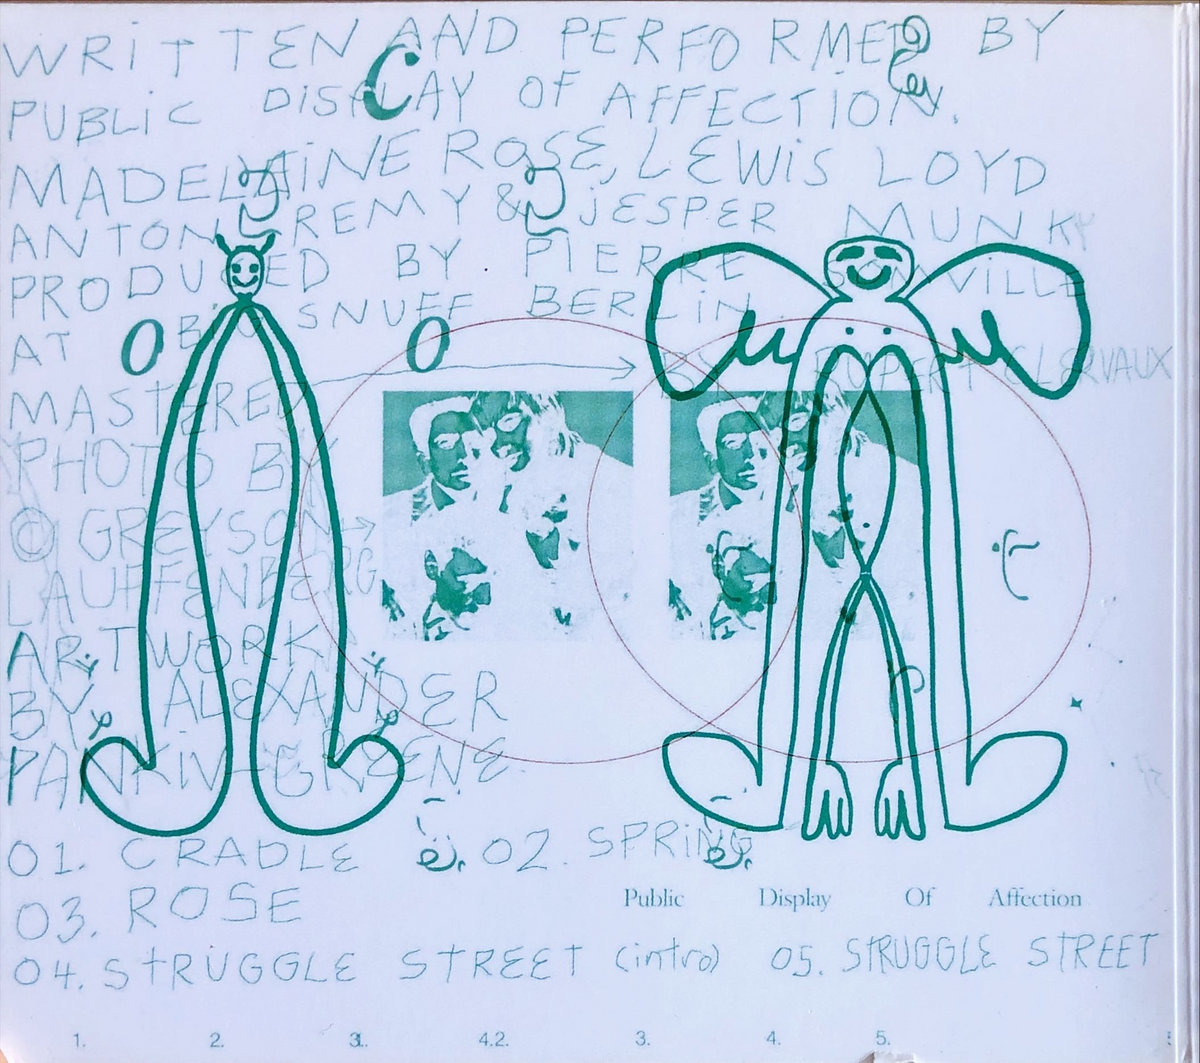 WRiTTEN AND PERFORMED BY
PUBLiC DiSPLAY OF AFFECTION.
MADELAiNE ROSE, LEWiS LOYD
ANTON REMY & jESPER MUNK
PRODUCED BY PIERRE VILLE
AT BIO SNUFF BERLiN
MASTERED → BY RUPERT CLERVAUX
PHOTO BY
© GREYSON →
LAUFFENBERG
ARTWORK
BY ALEXANDER
PANKiV-GREENE.
01. CRADLE 02. SPRiNG
Public Display Of Affection
03. ROSE
04. STRUGGLE STREET (intro) 05. STRUGGLE STREET
1. 2. 3. 4.2. 3. 4. 5.